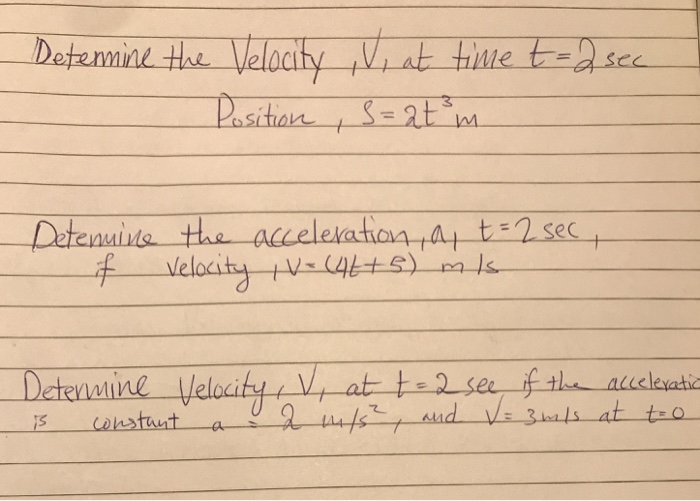 Determine the Velocity, V, at time t = 2 sec
Position, S = 2t³ m
Determine the acceleration, a, t = 2 sec,
if velocity, V = (4t + 5) m/s
Determine Velocity, V, at t = 2 sec if the acceleratio
is constant a = 2 m/s², and V = 3 m/s at t = 0